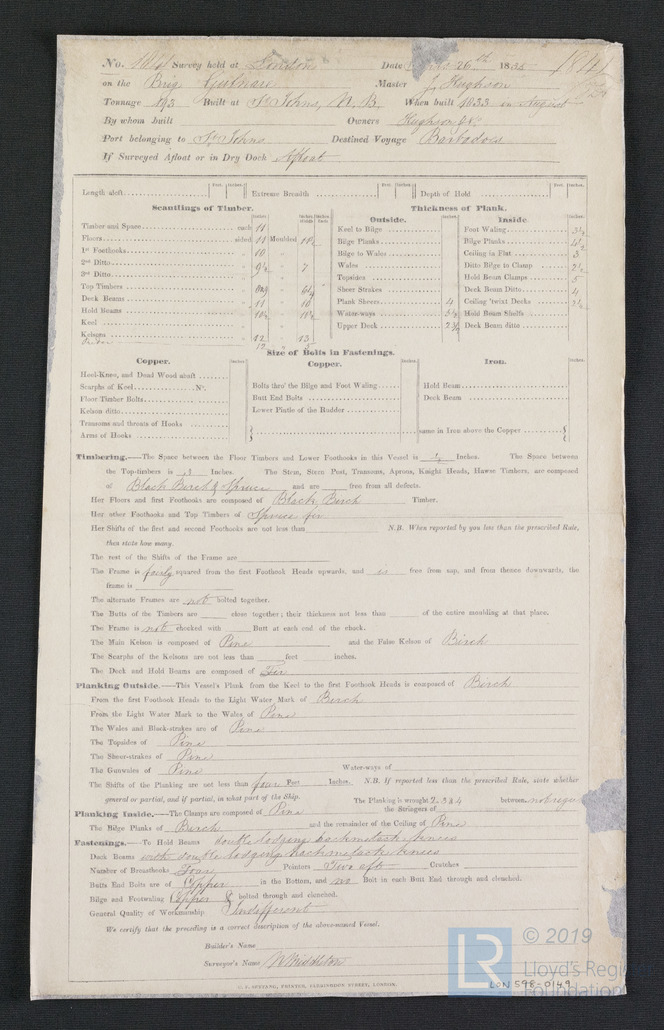 No. Survey held at London Date 26th 1835
on the Brig Master J. Hughson
Tonnage Built at St Johns, N.B. When built 1833 in August
By whom built Owners Hughson &
Port belonging to St Johns Destined Voyage Barbadoes
If Surveyed Afloat or in Dry Dock Afloat
Length aloft Feet. Inches. Extreme Breadth Feet. Inches. Depth of Hold Feet. Inches.
Scantlings of Timber. Thickness of Plank.
Outside. Inside.
Timber and Space each 11 Keel to Bilge Foot Waling 3½
Floors sided 11 Moulded Bilge Planks Bilge Planks 4½
1st Foothooks 10 Bilge to Wales Ceiling to Flat 3
2nd Ditto 9½ 7 Wales Ditto Bilge to Clamp 2½
3rd Ditto Topsides Hold Beam Clamps 5
Top Timbers Sheer Strakes Deck Beam Ditto 4
Deck Beams 11 10 Plank Sheers 4 Ceiling 'twixt Decks 2½
Hold Beams 10½ Water-ways Hold Beam Shelfs
Keel Upper Deck Deck Beam ditto
Kelsons 12 13
Size of Bolts in Fastenings.
Copper. Copper. Iron.
Heel-Knee, and Dead Wood abaft
Scarphs of Keel No. Bolts thro' the Bilge and Foot Waling Hold Beam
Floor Timber Bolts Butt End Bolts Deck Beam
Kelson ditto Lower Pintle of the Rudder
Transoms and throats of Hooks
Arms of Hooks same in Iron above the Copper
Timbering.—The Space between the Floor Timbers and Lower Foothooks in this Vessel is Inches. The Space between
the Top-timbers is 3 Inches. The Stem, Stern Post, Transoms, Aprons, Knight Heads, Hawse Timbers, are composed
of Black Birch & Spruce and are free from all defects.
Her Floors and first Foothooks are composed of Black Birch Timber.
Her other Foothooks and Top Timbers of Spruce fir
Her Shifts of the first and second Foothooks are not less than N.B. When reported by you less than the prescribed Rule,
then state how many.
The rest of the Shifts of the Frame are
The Frame is fairly squared from the first Foothook Heads upwards, and is free from sap, and from thence downwards, the
frame is
The alternate Frames are not bolted together.
The Butts of the Timbers are close together; their thickness not less than of the entire moulding at that place.
The Frame is not chocked with Butt at each end of the chock.
The Main Kelson is composed of Pine and the False Kelson of Birch
The Scarphs of the Kelsons are not less than feet inches.
The Deck and Hold Beams are composed of Fir
Planking Outside.—This Vessel's Plank from the Keel to the first Foothook Heads is composed of Birch
From the first Foothook Heads to the Light Water Mark of Birch
From the Light Water Mark to the Wales of Pine
The Wales and Black-strakes are of Pine
The Topsides of Pine
The Sheer-strakes of Pine
The Gunwales of Pine Water-ways of
The Shifts of the Planking are not less than four Feet Inches. N.B. If reported less than the prescribed Rule, state whether
general or partial, and if partial, in what part of the Ship. The Planking is wrought 2, 3 & 4 between
Planking Inside.—The Clamps are composed of Pine the Stringers of
The Bilge Planks of Birch and the remainder of the Ceiling of Pine
Fastenings.—To Hold Beams double lodging hackmetack knees
Deck Beams with double lodging hackmetack knees
Number of Breasthooks Four Pointers Two aft Crutches
Butts End Bolts are of Copper in the Bottom, and no Bolt in each Butt End through and clenched.
Bilge and Footwaling Copper & bolted through and clenched.
General Quality of Workmanship Indifferent
We certify that the preceding is a correct description of the above-named Vessel.
Builder's Name
Surveyor's Name W Middleton
PRINTER, LONDON.
LR © 2019
Lloyd's Regis
Foundation
LON 598-0149